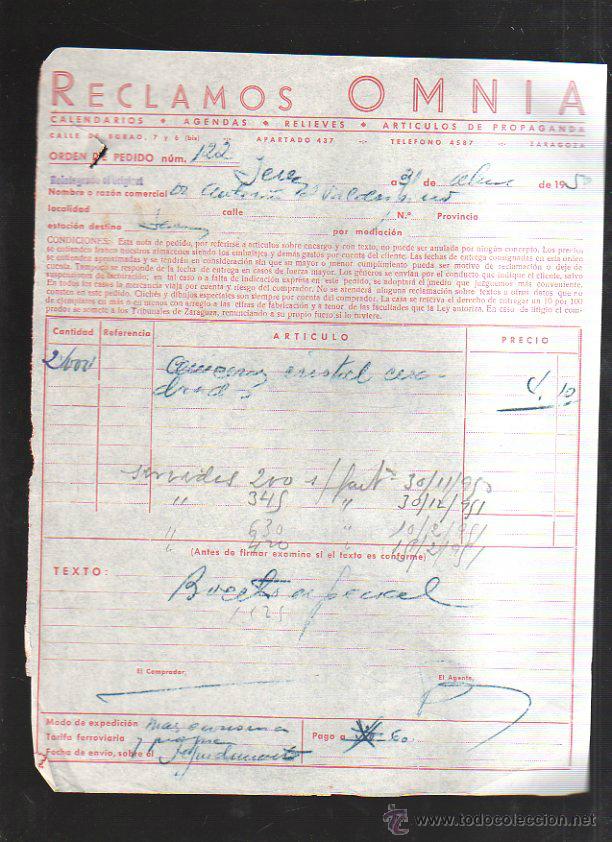 RECLAMOS OMNIA
CALENDARIOS • AGENDAS • RELIEVES • ARTICULOS DE PROPAGANDA
CALLE DE BGBAO, 7 y 6 (bis) -:- APARTADO 437 -:- TELEFONO 4587 -:- ZARAGOZA
ORDEN DE PEDIDO núm. 122
Jerez a 31 de de 1950
Reintegrado el original
Nombre o razón comercial Antonio
localidad calle N.º Provincia
estación destino por mediación
CONDICIONES: Esta nota de pedido, por referirse a artículos sobre encargo y con texto, no puede ser anulada por ningún concepto. Los precios
se entienden franco nuestros almacenes siendo los embalajes y demás gastos por cuenta del cliente. Las fechas de entrega consignadas en esta orden
se entienden aproximadas y se tendrán en consideración sin que su mayor o menor cumplimiento pueda ser motivo de reclamación o deje de
cuenta. Tampoco se responde de la fecha de entrega en casos de fuerza mayor. Los géneros se envían por el conducto que indique el cliente, salvo
suspensiones de facturación; en tal caso o a falta de indicación expresa en este pedido, se adoptará el medio que juzguemos más conveniente.
En todos los casos la mercancía viaja por cuenta y riesgo del comprador. No se atenderá ninguna reclamación sobre textos u otros datos que no
consten en este pedido. Clichés y dibujos especiales son siempre por cuenta del comprador. La casa se reserva el derecho de entregar un 10 por 100
de ejemplares en más o en menos con arreglo a las cifras de fabricación y a tenor de las facultades que la Ley autoriza. En caso de litigio el com-
prador se somete a los Tribunales de Zaragoza, renunciando a su propio fuero si lo tuviere.
Cantidad Referencia ARTICULO PRECIO
2.000 cristal 4.10
servidos 200 s/ fact. 30/11/950
" 345 " 30/12/951
" 630 " 10/2/951
" "
(Antes de firmar examine si el texto es conforme)
TEXTO:
Boceto especial
El Comprador, El Agente,
Modo de expedición
Tarifa ferroviaria
Fecha de envío, sobre el
Pago a
www.todocoleccion.net